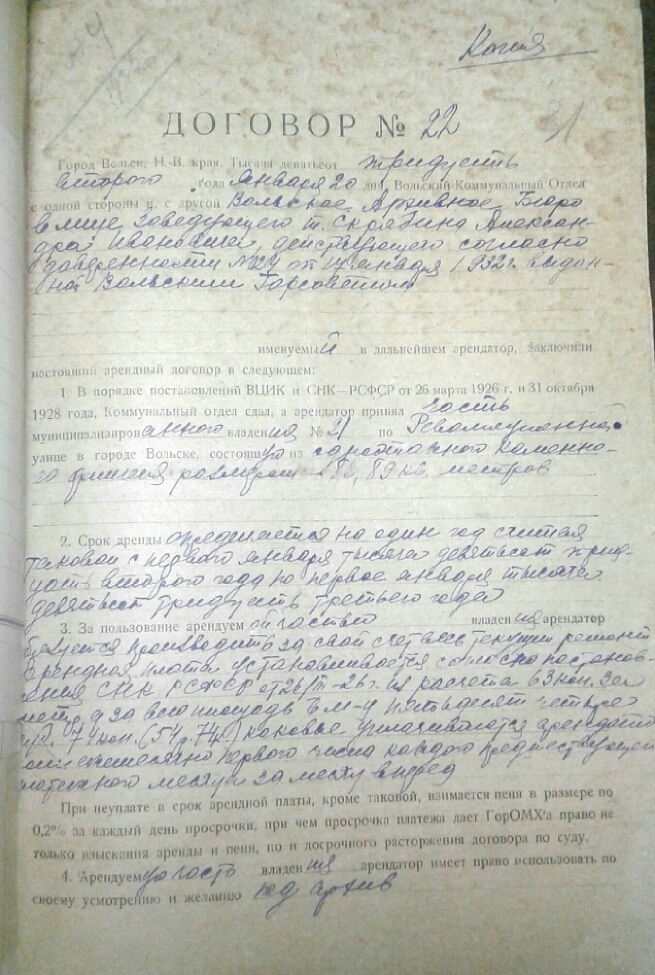 Копия
31
ДОГОВОР № 22
Город Вольск, Н.-В. края. Тысяча девятьсот тридцать
второго года Января 20 дня, Вольский Коммунальный Отдел
с одной стороны и, с другой Вольское Архивное Бюро
в лице заведующего т. Скрябина Александра
Ивановича, действующего согласно
доверенности № 24 от 14 января 1932 г. выданной
Вольским Горсоветом
именуемый в дальнейшем арендатор, заключили
настоящий арендный договор в следующем:
1. В порядке постановлений ВЦИК и СНК—РСФСР от 26 марта 1926 г. и 31 октября
1928 года, Коммунальный отдел сдал, а арендатор принял часть
муниципализированного владения № 21 по Революционной
улице в городе Вольске, состоящую из одноэтажного каменного
флигеля размером 89 кв. метров
2. Срок аренды определяется на один год считая
таковой с первого января тысяча девятьсот тридцать
второго года по первое января тысяча
девятьсот тридцать третьего года
3. За пользование арендуемой частью владения арендатор
обязуется производить за свой счет весь текущий ремонт
Арендная плата устанавливается согласно постановления
СНК РСФСР от 26/III-26 г. из расчета 63 коп. за
метр, а за всю площадь в м-ц пятьдесят четыре
руб. 74 коп. (54 р. 74 к.) каковые уплачиваются арендатором
ежемесячно первого числа каждого предшествующего
платежного месяца за месяц вперед
При неуплате в срок арендной платы, кроме таковой, взимается пеня в размере по
0,2% за каждый день просрочки, при чем просрочка платежа дает ГорОМХ'а право не
только взыскания аренды и пени, но и досрочного расторжения договора по суду.
4. Арендуемую часть владения арендатор имеет право использовать по
своему усмотрению и желанию под архив